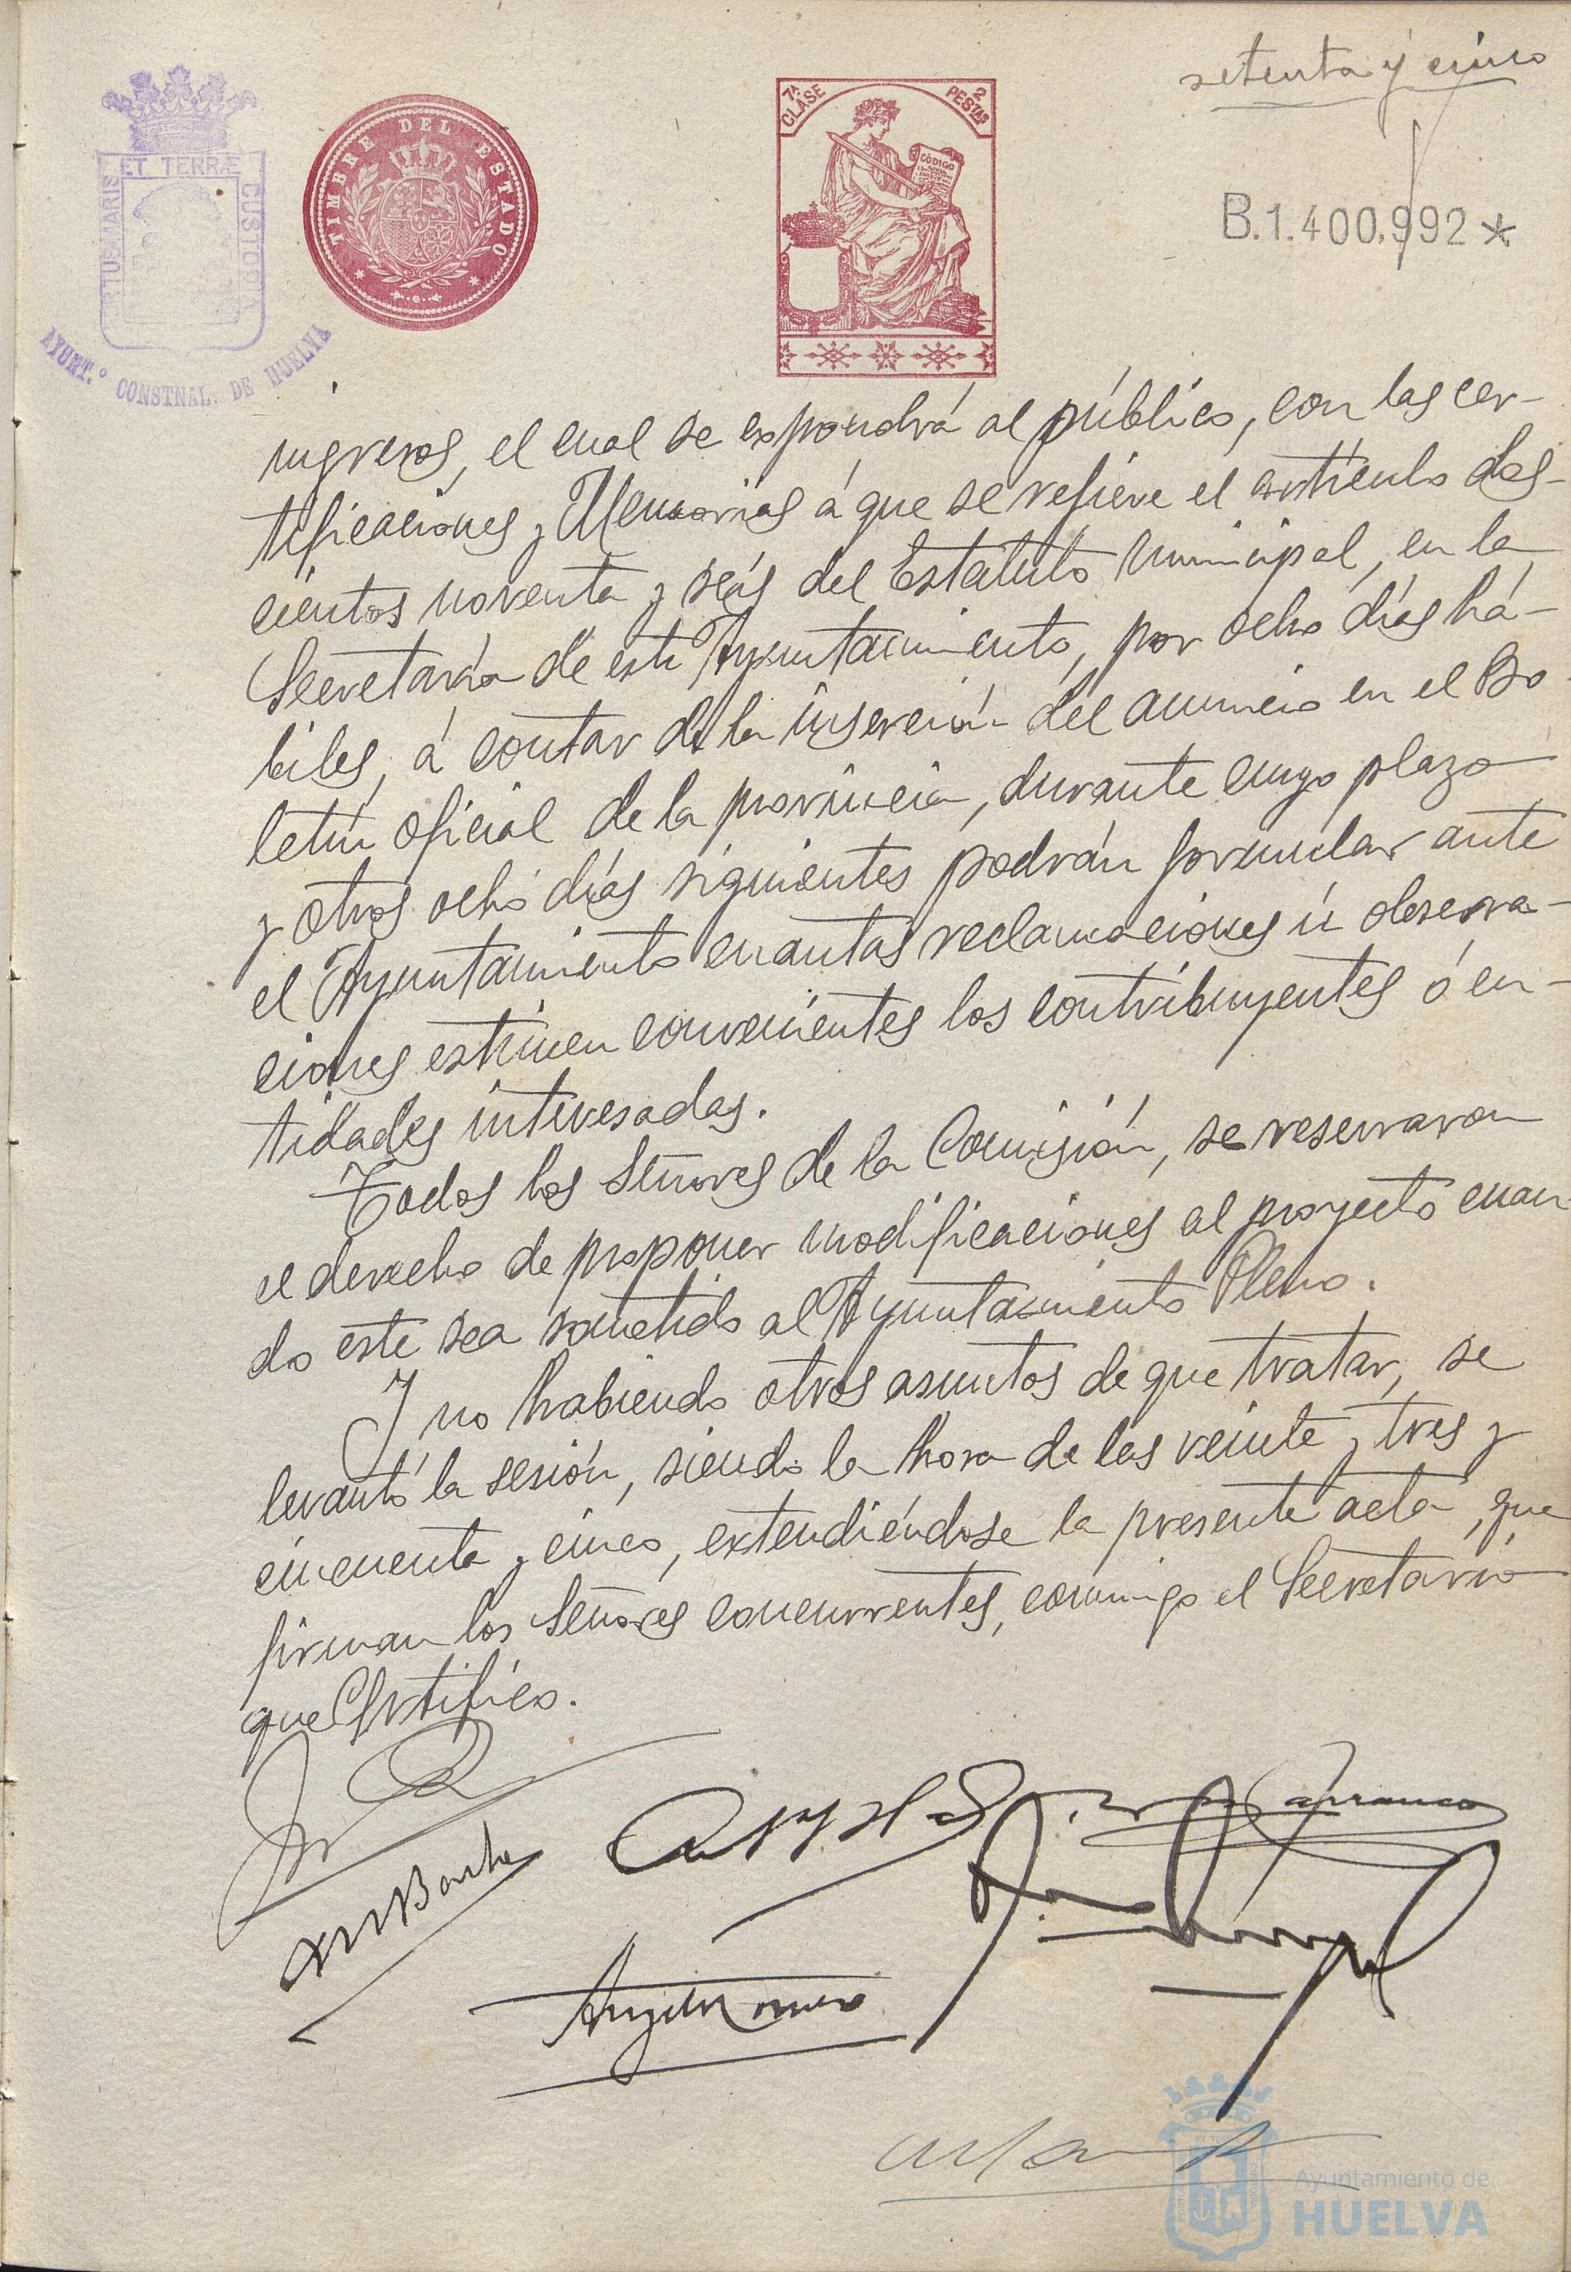 setenta y cinco
PORTUS MARIS ET TERRÆ CUSTODIA
AYUNT.º CONSTNAL. DE HUELVA
TIMBRE DEL ESTADO
7ª CLASE
2 PESTAS
CÓDIGO
B.1.400,992*
ingresos, el cual se expondrá al público, con las cer-
tificaciones y Memorias á que se refiere el artículo dos-
cientos noventa y seis del Estatuto municipal, en la
Secretaría de este Ayuntamiento, por ocho días há-
biles, á contar de la inserción del anuncio en el Bo-
letín oficial de la provincia, durante cuyo plazo
y otros ocho días siguientes podrán formular ante
el Ayuntamiento cuantas reclamaciones ú observa-
ciones estimen convenientes los contribuyentes ó en-
tidades interesadas.
Todos los Señores de la Comisión, se reservaron
el derecho de proponer modificaciones al proyecto cuan-
do este sea sometido al Ayuntamiento Pleno.
Y no habiendo otros asuntos de que tratar, se
levantó la sesión, siendo la hora de las veinte y tres y
cincuenta y cinco, extendiéndose la presente acta, que
firman los Señores concurrentes, conmigo el Secretario
que Certifico.
Carranco
Ayuntamiento de
HUELVA